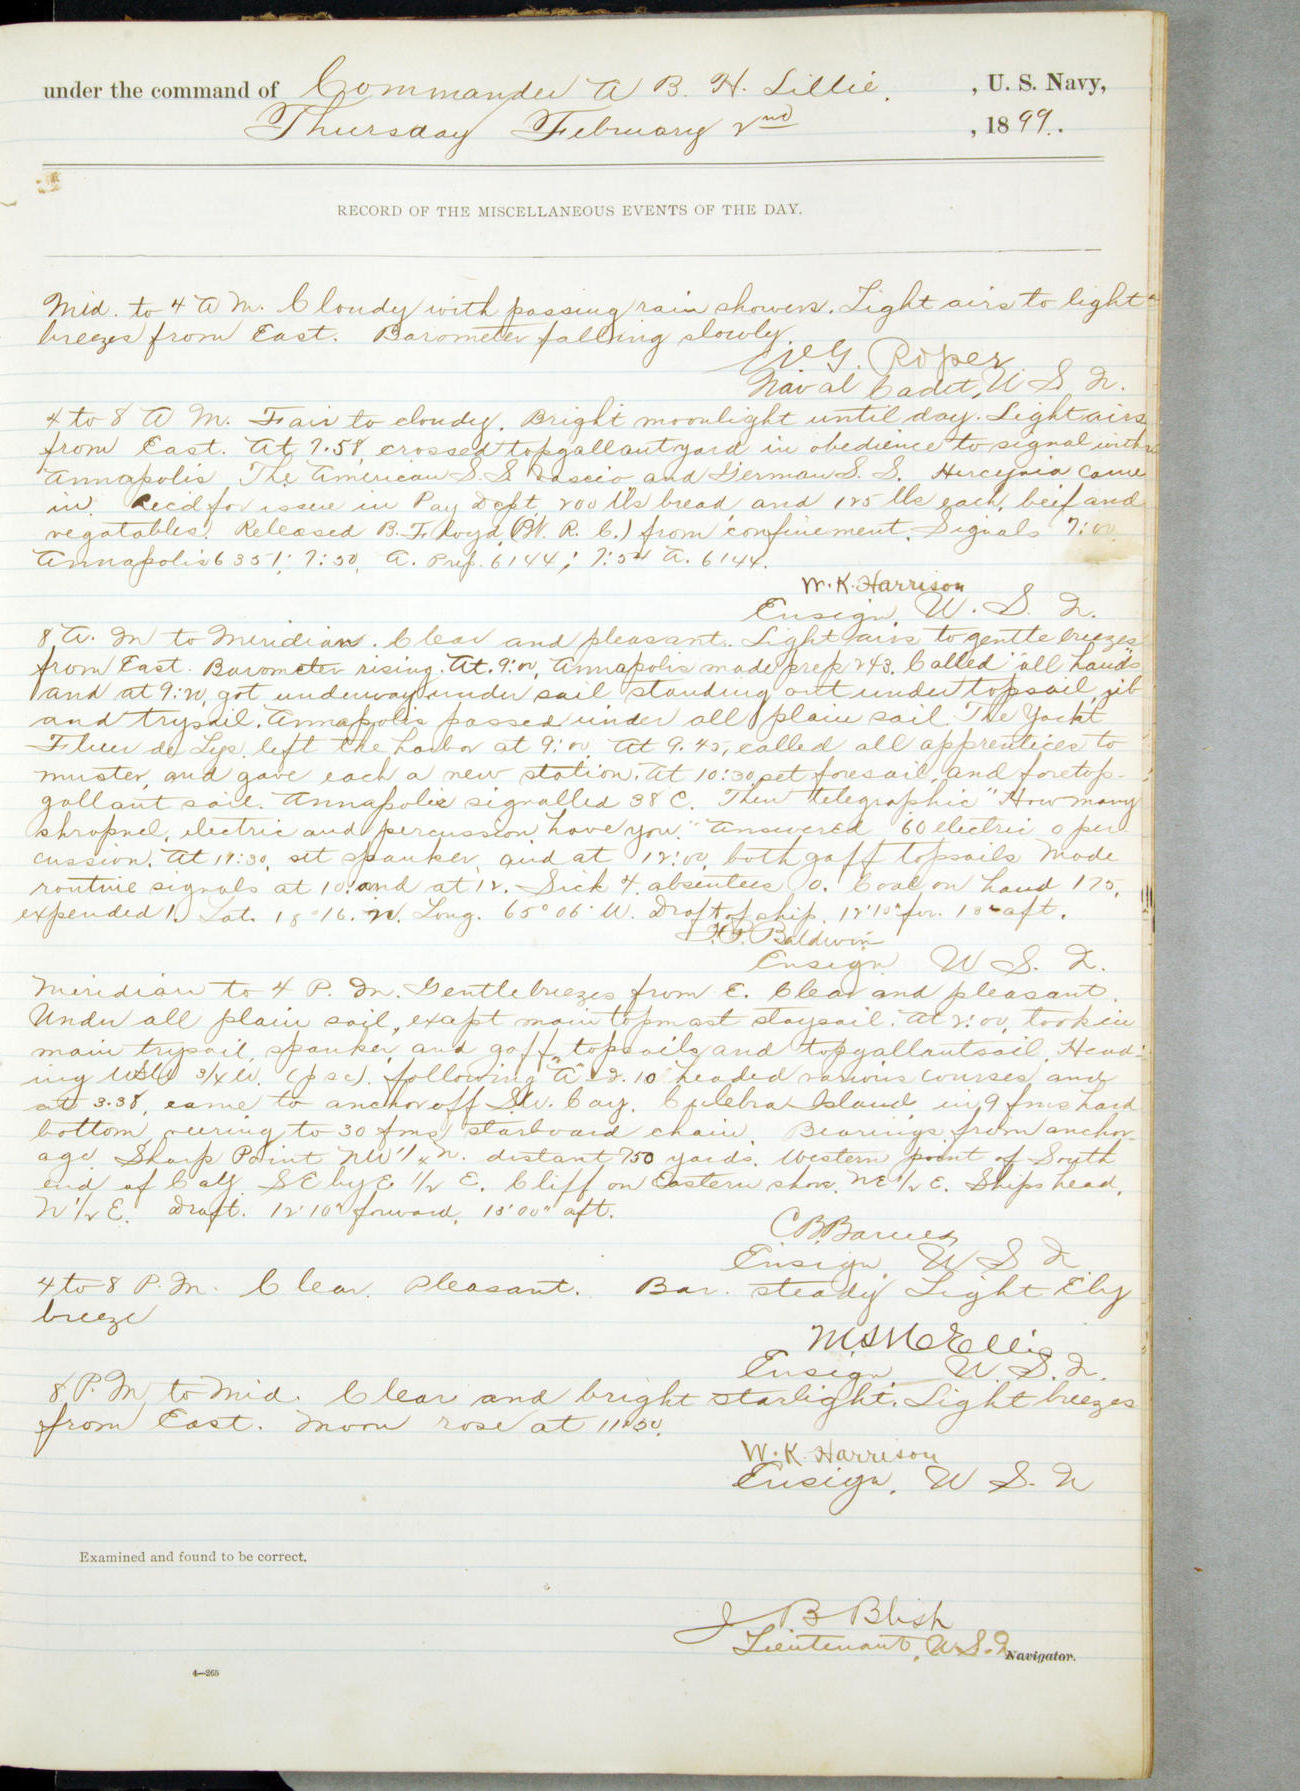 under the command of Commander A B. H. Lillie. , U. S. Navy,
Thursday February 2nd , 1899.
RECORD OF THE MISCELLANEOUS EVENTS OF THE DAY.
Mid. to 4 A M. Cloudy with passing rain showers. Light airs to light
breezes from East. Barometer falling slowly.
W G. Roper
Naval Cadet, U S N.
4 to 8 A M. Fair to cloudy. Bright moonlight until day. Light airs
from East. At 7.58, crossed topgallant yard in obedience to signal with
Annapolis. The American S.S. and German S. S. Hercynia came
in. Rec'd for issue in Pay Dept. 200 lbs bread and 125 lbs each, beef and
vegatables. Released B. F. Floyd, (W. R. C.) from confinement. Signals 7:00
Annapolis 6351; 7:50, A. Prep. 6144; 7:54 A. 6144.
W. K. Harrison
Ensign, U. S. N.
8 A. M to Meridian. Clear and pleasant. Light airs to gentle breezes
from East. Barometer rising. At. 9:00, Annapolis made prep 243. Called "all hands"
and at 9:20, got underway under sail standing out under topsail, jib
and trysail. Annapolis passed under all plain sail. The Yacht
Fleur de Lys left the harbor at 9:00. At 9.45, called all apprentices to
muster, and gave each a new station. At 10:30 set foresail, and foretop-
gallant sail. Annapolis signalled 38 C. Then telegraphic "How many
shropnel, electric and percussion have you." Answered "60 electric 0 per
cussion. At 11:30, set spanker, and at 12:00, both gaff topsails Made
routine signals at 10: and at 12. Sick 4. absentees 0. Coal on hand 175,
expended 1. Lat. 18° 16. N. Long. 65° 06' W. Draft of ship. 12'10" for. 13' aft.
H. F. Baldwin
Ensign U S. N.
Meridian to 4 P. M. Gentle breezes from E. Clear and pleasant.
Under all plain sail, exept main topmast staysail. At 2:00, took in
main trysail, spanker, and gaff topsails and topgallantsail. Head-
ing WSW 3/4 W. (p s c). following "A" 2.10 headed various courses and
at 3.38, came to anchor off S.W. Cay. Culebra Island in 9 fms hard
bottom, veering to 30 fms starboard chain. Bearings from anchor-
age Sharp Point NW 1/4 N. distant 750 yards. Western point of South
end of Cay SE by E 1/2 E. Cliff on Eastern shore. NE 1/2 E. Ships head,
N 1/2 E. Draft. 12' 10" forward, 13' 00" aft.
C B Barnes
Ensign, U S N
4 to 8 P. M. Clear. Pleasant. Bar. steady Light Ely
breeze
M. St. C. Ellis
Ensign U. S. N.
8 P. M. to Mid. Clear and bright starlight. Light breezes
from East. Moon rose at 11:30.
W. K. Harrison
Ensign, U S. N
Examined and found to be correct.
J B Blish
Lieutenant, U S. N Navigator.
4—268